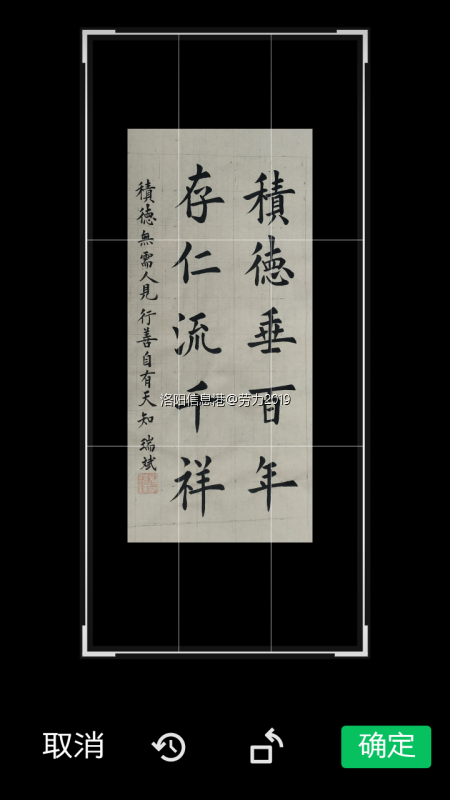 積德垂百年
存仁流千祥
積德無需人見 行善自有天知 瑞斌
洛阳信息港@劳力2019
取消
确定